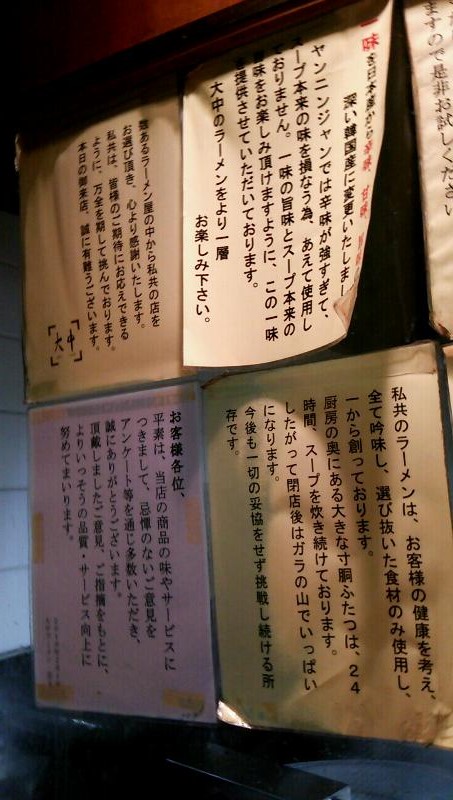 ますので是非お試しください
一味を日本産から辛味、甘味、旨味の
深い韓国産に変更いたしまし
ヤンニンジャンでは辛味が強すぎて、
スープ本来の味を損なう為、あえて使用し
ておりません。一味の旨味とスープ本来の
旨味をお楽しみ頂けますように、この一味
を提供させていただいております。
大中のラーメンをより一層
お楽しみ下さい。
数あるラーメン屋の中から私共の店を
お選び頂き、心より感謝いたします。
私共は、皆様のご期待にお応えできる
ように、万全を期して挑んでおります。
本日の御来店、誠に有難うございます。
大中
私共のラーメンは、お客様の健康を考え、
全て吟味し、選び抜いた食材のみ使用し、
一から創っております。
厨房の奥にある大きな寸胴ふたつは、24
時間、スープを炊き続けております。
したがって閉店後はガラの山でいっぱい
になります。
今後も一切の妥協をせず挑戦し続ける所
存です。
お客様各位、
平素は、当店の商品の味やサービスに
つきまして、忌憚のないご意見を
アンケート等を通じ多数いただき、
誠にありがとうございます。
頂戴しましたご意見、ご指摘をもとに、
よりいっそうの品質・サービス向上に
努めてまいります。